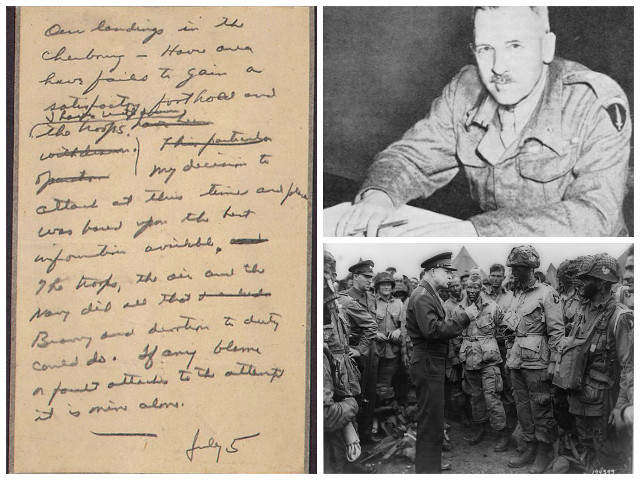 Our landings in the
Cherbourg - Havre area
have failed to gain a
satisfactory foothold and
I have withdrawn
the troops. have been
withdrawn. This particular
operation My decision to
attack at this time and place
was based upon the best
information available, and
The troops, the air and the
Navy did all that
Bravery and devotion to duty
could do. If any blame
or fault attaches to the attempt
it is mine alone.
July 5
194399